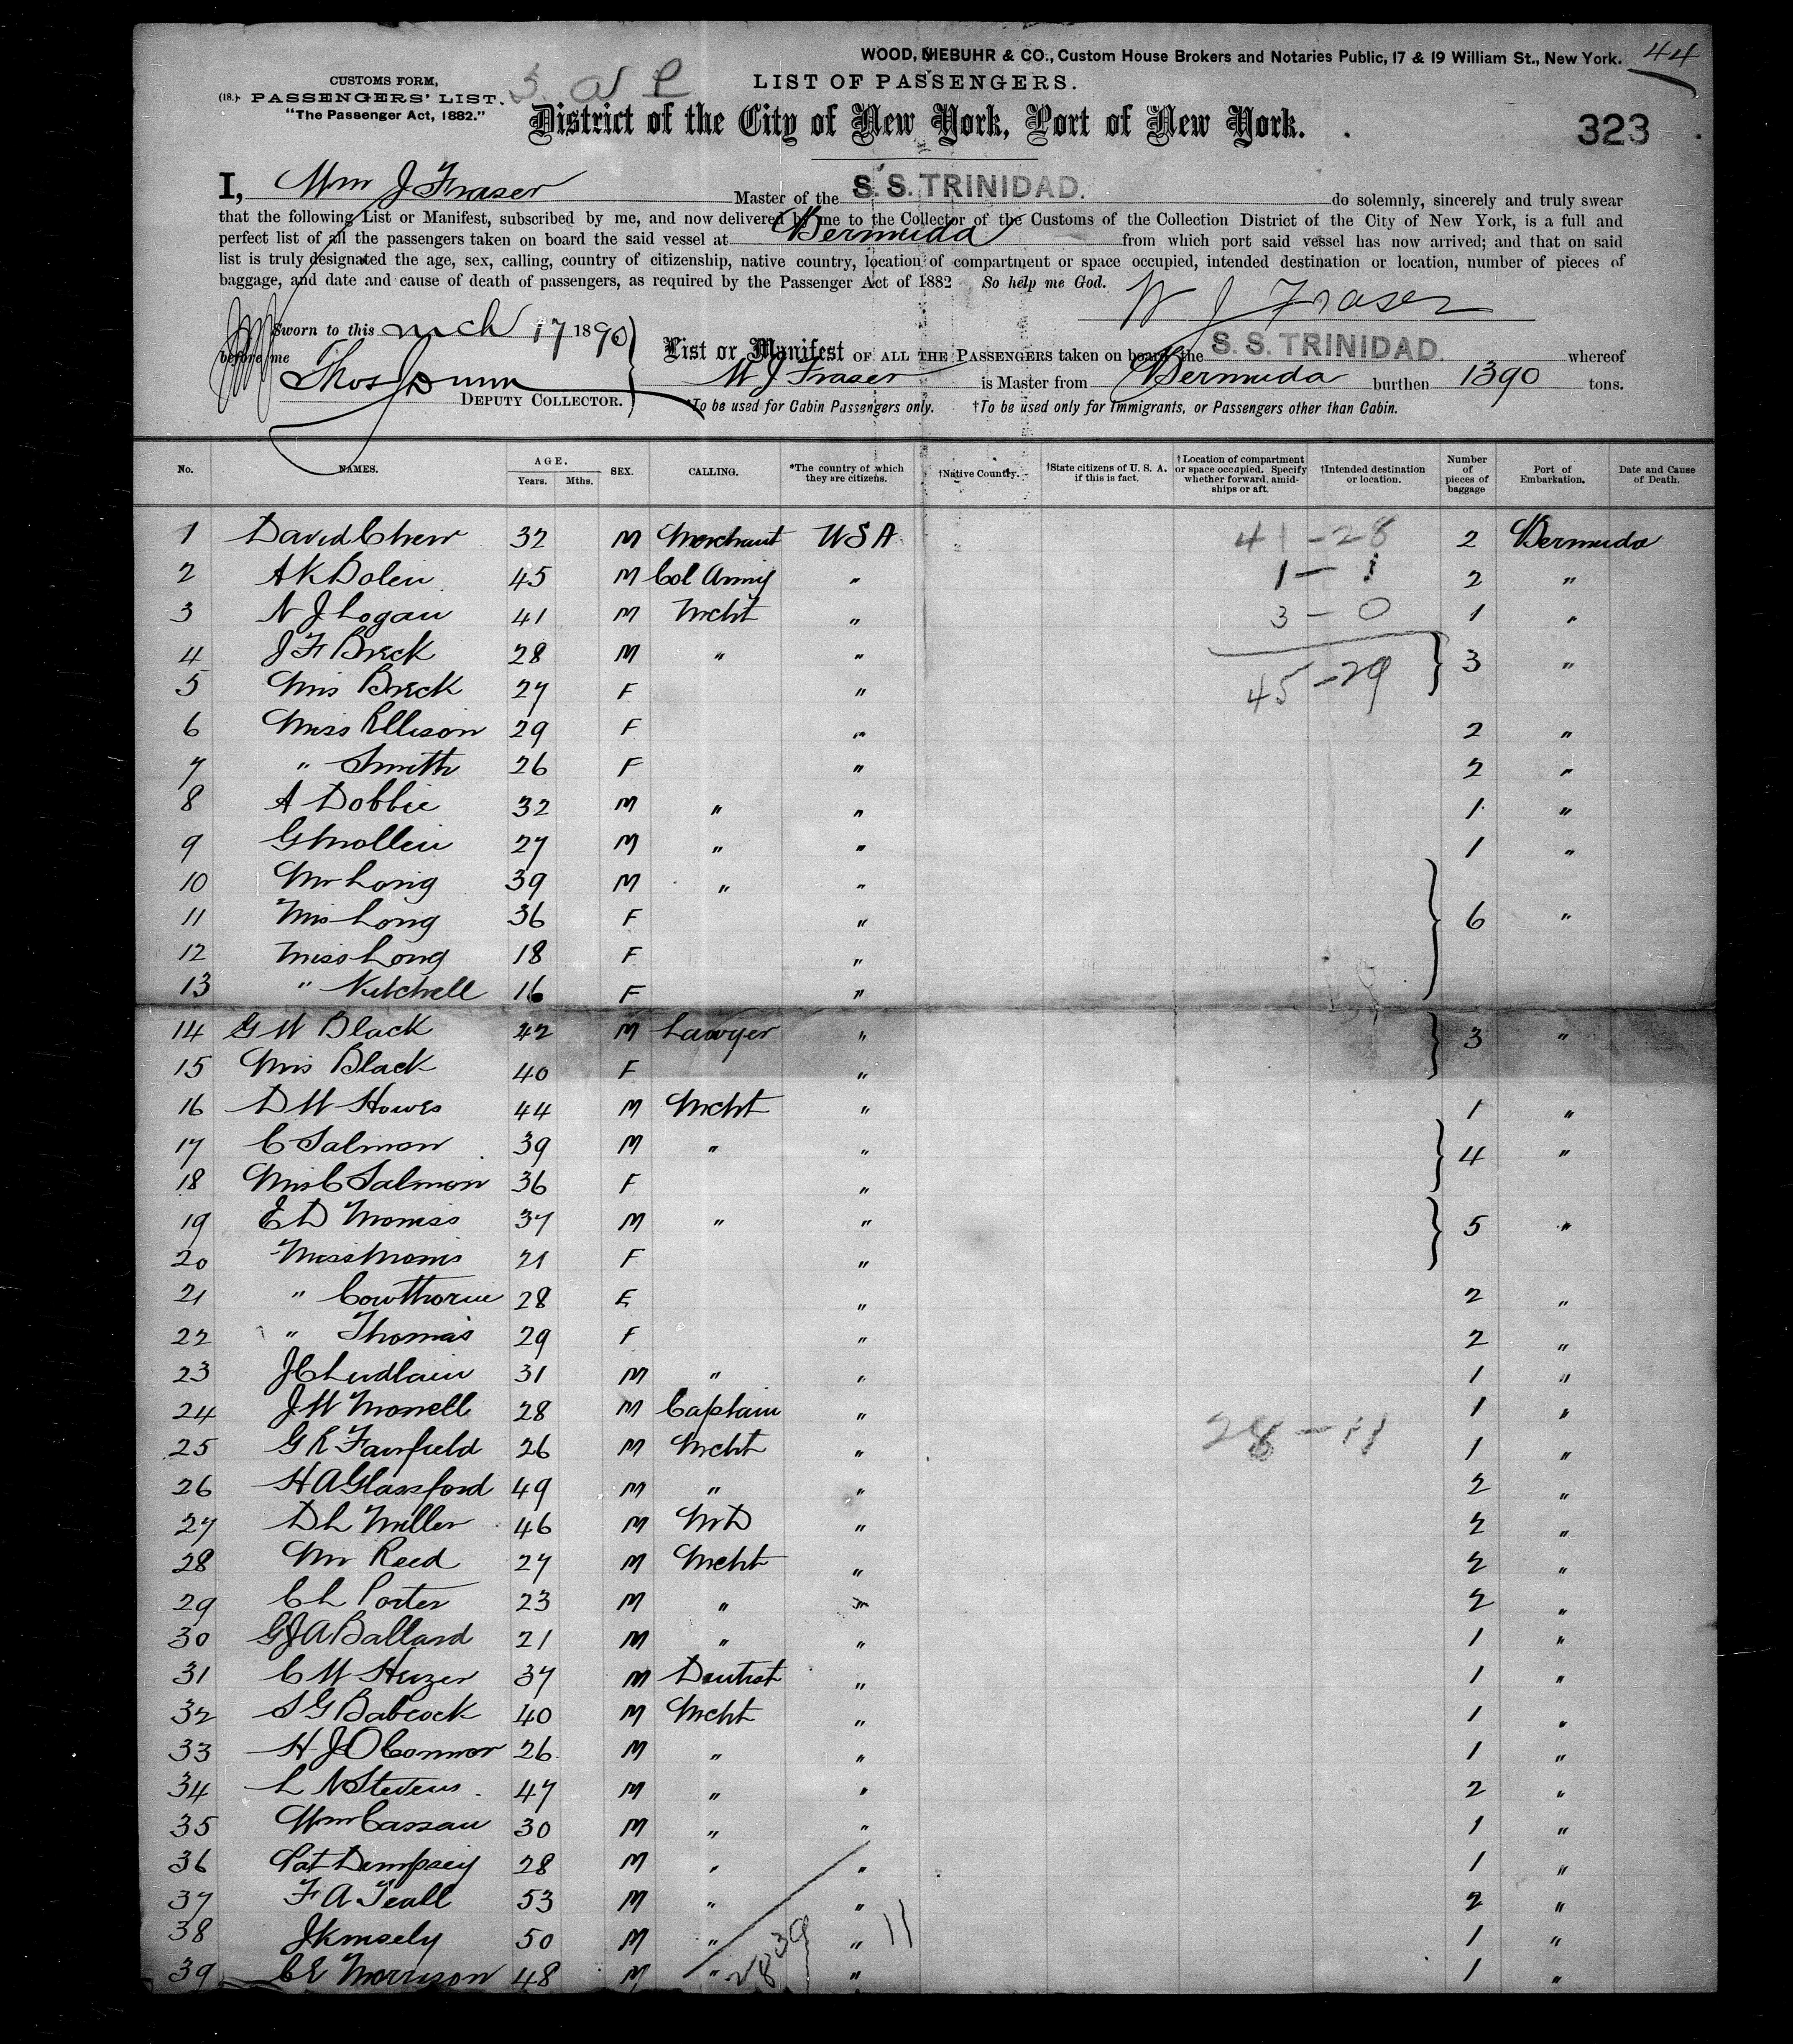 WOOD, NIEBUHR & CO., Custom House Brokers and Notaries Public, 17 & 19 William St., New York. 44
CUSTOMS FORM,
(18.) PASSENGERS' LIST.
"The Passenger Act, 1882."
LIST OF PASSENGERS.
District of the City of New York, Port of New York.
323
I, Wm J Fraser Master of the S. S. TRINIDAD. do solemnly, sincerely and truly swear
that the following List or Manifest, subscribed by me, and now delivered by me to the Collector of the Customs of the Collection District of the City of New York, is a full and
perfect list of all the passengers taken on board the said vessel at Bermuda from which port said vessel has now arrived; and that on said
list is truly designated the age, sex, calling, country of citizenship, native country, location of compartment or space occupied, intended destination or location, number of pieces of
baggage, and date and cause of death of passengers, as required by the Passenger Act of 1882 So help me God.
W J Fraser
Sworn to this mch 17 1890
before me
Thos Dunn
DEPUTY COLLECTOR.
List or Manifest OF ALL THE PASSENGERS taken on board the S. S. TRINIDAD. whereof
W J Fraser is Master from Bermuda burthen 1390 tons.
†To be used for Cabin Passengers only. †To be used only for Immigrants, or Passengers other than Cabin.
No. NAMES. AGE. Years. Mths. SEX. CALLING. *The country of which they are citizens. †Native County. †State citizens of U. S. A. if this is fact. †Location of compartment or space occupied. Specify whether forward, amidships or aft. †Intended destination or location. Number of pieces of baggage Port of Embarkation. Date and Cause of Death.
1 David Chew 32 M Merchant USA 41 - 28 2 Bermuda
2 A K Bolen 45 M Col Army " 1 - 1 2 "
3 N J Logan 41 M Mcht " 3 - 0 1 "
4 J F Breck 28 M " " 3 "
5 Mrs Breck 27 F " 45 - 29
6 Miss Ellison 29 F " 2 "
7 " Smith 26 F " 2 "
8 A Dobbie 32 M " " 1 "
9 G Mollen 27 M " " 1 "
10 Mr Long 39 M " "
11 Mrs Long 36 F " 6 "
12 Miss Long 18 F "
13 " Kitchell 16 F "
14 G W Black 42 M Lawyer " 3 "
15 Mrs Black 40 F "
16 D W Howes 44 M Mcht " 1 "
17 C Salmon 39 M " " 4 "
18 Mrs C Salmon 36 F "
19 E D Morriss 37 M " " 5 "
20 Miss Morris 21 F "
21 " Cowthorne 28 F " 2 "
22 " Thomas 29 F " 2 "
23 J C Ludlam 31 M " " 1 "
24 J W Morrell 28 M Captain " 1 "
25 G R Fairfield 26 M Mcht " 28 - 11 1 "
26 H A Glassford 49 M " " 2 "
27 D L Miller 46 M MD " 2 "
28 Mr Reed 27 M Mcht " 2 "
29 C L Porter 23 M " " 2 "
30 G J A Ballard 21 M " " 1 "
31 C W Heizer 37 M Dentist " 1 "
32 S G Babcock 40 M Mcht " 1 "
33 H J O Connor 26 M " " 1 "
34 L N Stevens 47 M " " 2 "
35 Wm Cassau 30 M " " 1 "
36 Pat Dempsey 28 M " " 1 "
37 F A Teall 53 M " " 2 "
38 J 50 M " " 11 1 "
39 C E Morrison 48 M " 28 39 " 1 "